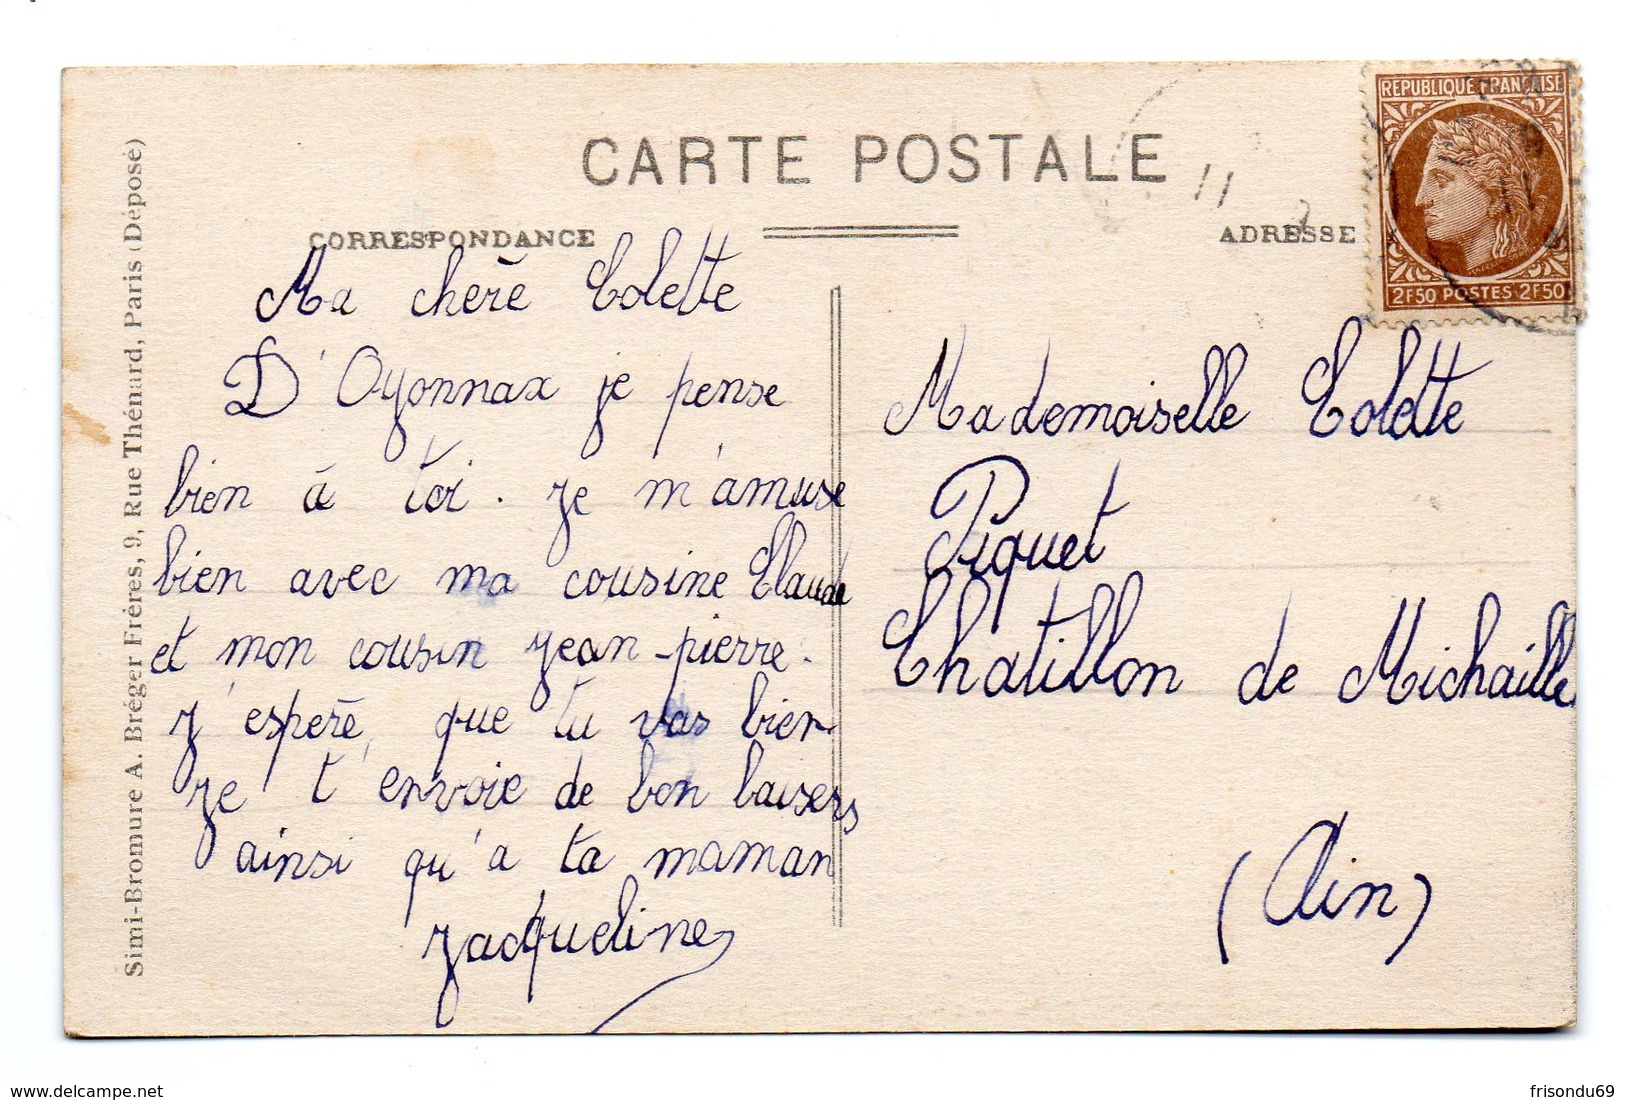 CARTE POSTALE
CORRESPONDANCE
ADRESSE
REPUBLIQUE FRANÇAISE
2F50 POSTES 2F50
11
Simi-Bromure A. Bréger Frères, 9, Rue Thénard, Paris (Déposé)
Ma chère Colette
D'Oyonnax je pense
bien à toi. Je m'amuse
bien avec ma cousine Claude
et mon cousin Jean-pierre.
J'espère, que tu vas bien
Je t'envoie de bon baisers
ainsi qu'a ta maman
Jacqueline
Mademoiselle Colette
Piquet
Chatillon de Michaille
(Ain)
www.delcampe.net
frisondu69